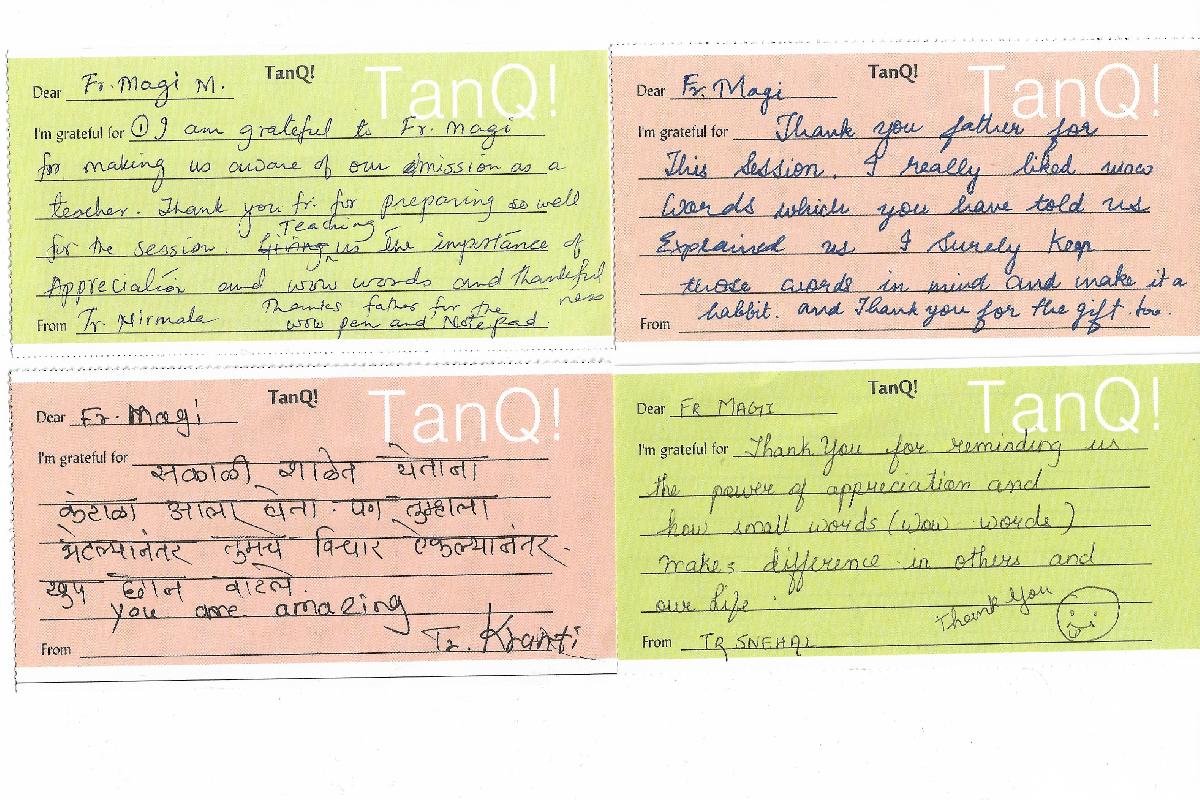 TanQ!
TanQ!
Dear Fr. Magi M.
I'm grateful for ① I am grateful to Fr. Magi
for making us aware of our mission as a
teacher. Thank you fr. for preparing so well
Teaching
for the session. Giving us the importance of
Appreciation and wow words and thankful
ness
Thanks father for the
From Tr. Nirmala wow pen and Notepad.
TanQ!
TanQ!
Dear Fr. Magi
I'm grateful for Thank you father for
This Session. I really liked wow
Words which you have told us
Explained us I Surely Keep
those words in mind and make it a
habbit. and Thank you for the gift. too.
From
TanQ!
TanQ!
Dear Fr. Magi
I'm grateful for सकाळी शाळेत येताना
कंटाळा आला होता. पण तुम्हाला
भेटल्यानंतर तुमचे विचार ऐकल्यानंतर.
खुप छान वाटले.
you are amazing
From Tr. Kranti
TanQ!
TanQ!
Dear FR MAGI
I'm grateful for Thank You for reminding us
the power of appreciation and
how small words (wow words)
makes difference in others and
our life.
Thank You
From TR SNEHAL